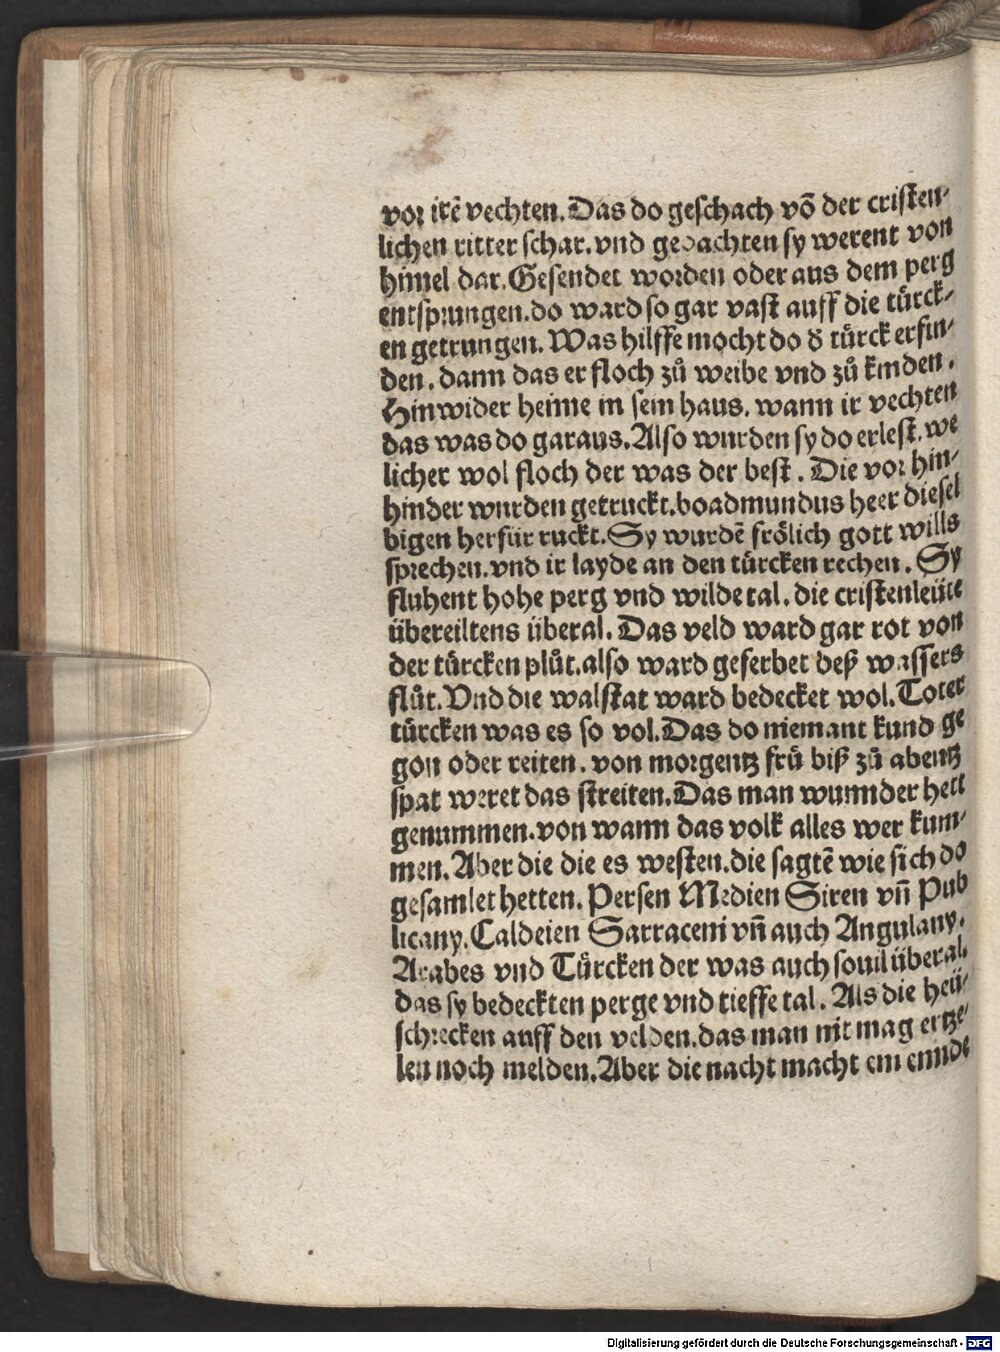 vor irē vechten. Das do geschach vō der cristen-
lichen ritter schar. vnd gedachten sy werent von
himel dar. Gesendet worden oder aus dem perg
entsprungen. do ward so gar vast auff die türck-
en getrungen. Was hilffe mocht do d̕ türck erfin-
den. dann das er floch zů weibe vnd zů kinden.
Hinwider heime in sein haus. wann ir vechten
das was do garaus. Also wurden sy do erlest. we
licher wol floch der was der best. Die vor hin-
hinder wurden getruckt. boadmundus heer diesel
bigen herfür ruckt. Sy wurdē frölich gott wills
sprechen. vnd ir layde an den türcken rechen. Sy
fluhent hohe perg vnd wilde tal. die cristenleüte
übereiltens überal. Das veld ward gar rot von
der türcken plůt. also ward geferbet deß wassers
flůt. Vnd die walstat ward bedecket wol. Toter
türcken was es so vol. Das do niemant kund ge
gon oder reiten. von morgentz frů biß zů abentz
spat weret das streiten. Das man wunnder hett
genummen. von wann das volk alles wer kum-
men. Aber die die es westen. die sagtē wie sich do
gesamlet hetten. Persen Medien Siren vn̄ Pub
licany. Caldeien Sarraceni vn̄ auch Angulany.
Arabes vnd Türcken der was auch souil überal.
das sy bedeckten perge vnd tieffe tal. Als die heü-
schrecken auff den velden. das man nit mag ertze-
len noch melden. Aber die nacht macht ein ennde
Digitalisierung gefördert durch die Deutsche Forschungsgemeinschaft - DFG